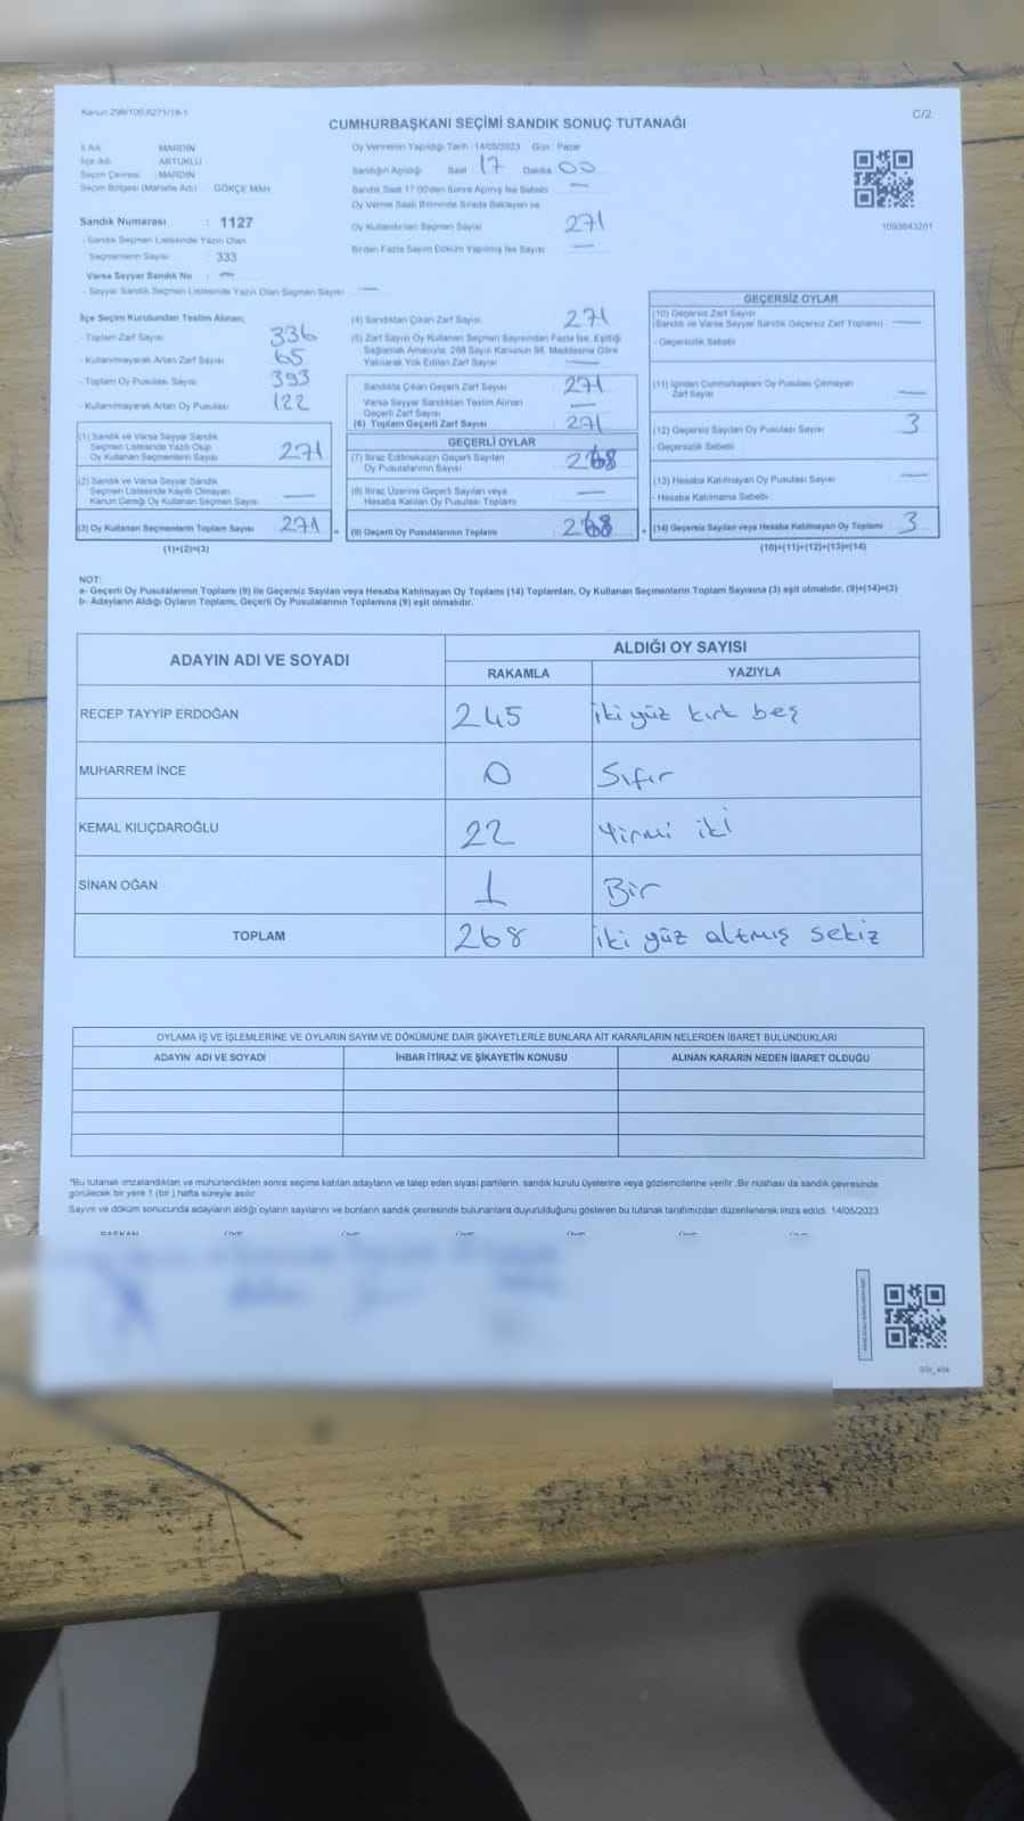 Kanun 298/100,6271/18-1
C/2
CUMHURBAŞKANI SEÇİMİ SANDIK SONUÇ TUTANAĞI
İl Adı MARDİN
İlçe Adı ARTUKLU
Seçim Çevresi MARDİN
Seçim Bölgesi (Mahalle Adı) GÖKÇE MAH
Oy Vermenin Yapıldığı Tarih : 14/05/2023 Gün : Pazar
Sandığın Açıldığı Saat 17 Dakika 00
Sandık Saat 17:00'den Sonra Açılmış İse Sebebi —
Oy Verme Saati Bitiminde Sırada Bekleyen ve
Oy Kullandırılan Seçmen Sayısı 271
Birden Fazla Sayım Döküm Yapılmış İse Sayısı —
1093643201
Sandık Numarası : 1127
- Sandık Seçmen Listesinde Yazılı Olan
Seçmenlerin Sayısı 333
Varsa Seyyar Sandık No : —
- Seyyar Sandık Seçmen Listesinde Yazılı Olan Seçmen Sayısı —
İlçe Seçim Kurulundan Teslim Alınan;
- Toplam Zarf Sayısı 336
- Kullanılmayarak Artan Zarf Sayısı 65
- Toplam Oy Pusulası Sayısı 393
- Kullanılmayarak Artan Oy Pusulası 122
(1) Sandık ve Varsa Seyyar Sandık
Seçmen Listesinde Yazılı Olup
Oy Kullanan Seçmenlerin Sayısı 271
(2) Sandık ve Varsa Seyyar Sandık
Seçmen Listesinde Kayıtlı Olmayan
Kanun Gereği Oy Kullanan Seçmen Sayısı —
(3) Oy Kullanan Seçmenlerin Toplam Sayısı 271
(1)+(2)=(3)
(4) Sandıktan Çıkan Zarf Sayısı 271
(5) Zarf Sayısı Oy Kullanan Seçmen Sayısından Fazla İse, Eşitliği
Sağlamak Amacıyla, 298 Sayılı Kanunun 98. Maddesine Göre
Yakılarak Yok Edilen Zarf Sayısı —
Sandıkta Çıkan Geçerli Zarf Sayısı 271
Varsa Seyyar Sandıktan Teslim Alınan
Geçerli Zarf Sayısı —
(6) Toplam Geçerli Zarf Sayısı 271
GEÇERLİ OYLAR
(7) İtiraz Edilmeksizin Geçerli Sayılan
Oy Pusulalarının Sayısı 268
(8) İtiraz Üzerine Geçerli Sayılan veya
Hesaba Katılan Oy Pusulası Toplamı —
(9) Geçerli Oy Pusulalarının Toplamı 268
GEÇERSİZ OYLAR
(10) Geçersiz Zarf Sayısı
(Sandık ve Varsa Seyyar Sandık Geçersiz Zarf Toplamı) —
- Geçersizlik Sebebi
(11) İçinden Cumhurbaşkanı Oy Pusulası Çıkmayan
Zarf Sayısı —
(12) Geçersiz Sayılan Oy Pusulası Sayısı 3
- Geçersizlik Sebebi
(13) Hesaba Katılmayan Oy Pusulası Sayısı —
- Hesaba Katılmama Sebebi
(14) Geçersiz Sayılan veya Hesaba Katılmayan Oy Toplamı 3
(10)+(11)+(12)+(13)=(14)
NOT:
a- Geçerli Oy Pusulalarının Toplamı (9) ile Geçersiz Sayılan veya Hesaba Katılmayan Oy Toplamı (14) Toplamları, Oy Kullanan Seçmenlerin Toplam Sayısına (3) eşit olmalıdır. (9)+(14)=(3)
b- Adayların Aldığı Oyların Toplamı, Geçerli Oy Pusulalarının Toplamına (9) eşit olmalıdır.
ADAYIN ADI VE SOYADI ALDIĞI OY SAYISI
RAKAMLA YAZIYLA
RECEP TAYYİP ERDOĞAN 245 iki yüz kırk beş
MUHARREM İNCE 0 Sıfır
KEMAL KILIÇDAROĞLU 22 Yirmi iki
SİNAN OĞAN 1 Bir
TOPLAM 268 iki yüz altmış sekiz
OYLAMA İŞ VE İŞLEMLERİNE VE OYLARIN SAYIM VE DÖKÜMÜNE DAİR ŞİKAYETLERLE BUNLARA AİT KARARLARIN NELERDEN İBARET BULUNDUKLARI
ADAYIN ADI VE SOYADI İHBAR İTİRAZ VE ŞİKAYETİN KONUSU ALINAN KARARIN NEDEN İBARET OLDUĞU
"Bu tutanak imzalandıktan ve mühürlendikten sonra seçime katılan adayların ve talep eden siyasi partilerin, sandık kurulu üyelerine veya gözlemcilerine verilir. Bir nüshası da sandık çevresinde
görülecek bir yere 1 (bir) hafta süreyle asılır.
Sayım ve döküm sonucunda adayların aldığı oyların sayılarını ve bunların sandık çevresinde bulunanlara duyurulduğunu gösteren bu tutanak tarafımızdan düzenlenerek imza edildi. 14/05/2023
BAŞKAN